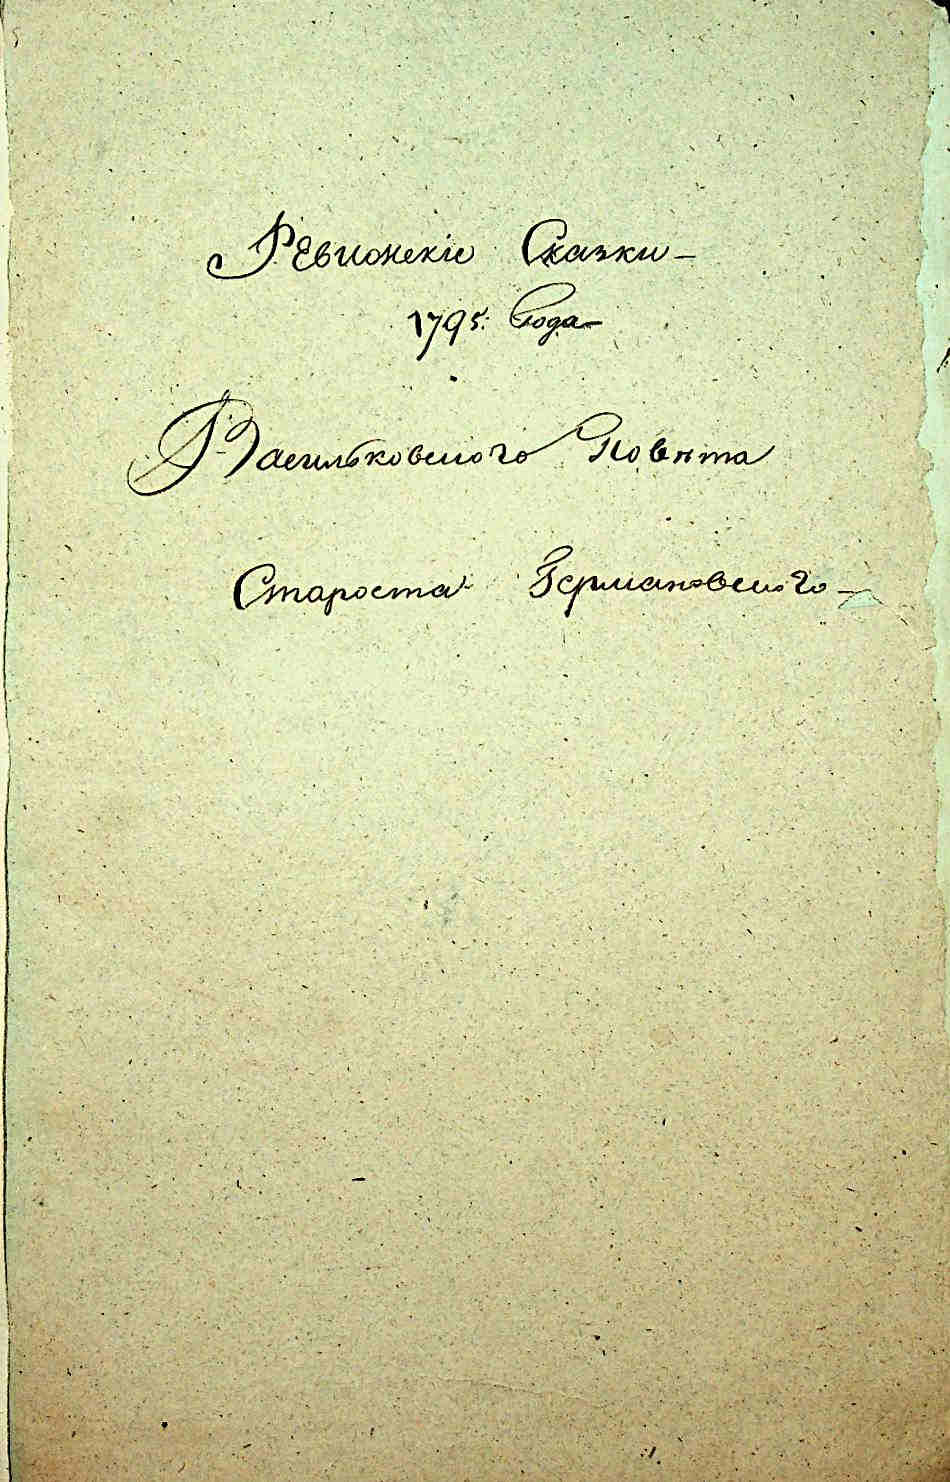 Ревионскіе Сказки
1795. Года
Васильковского Повѣта
Староста Германовского